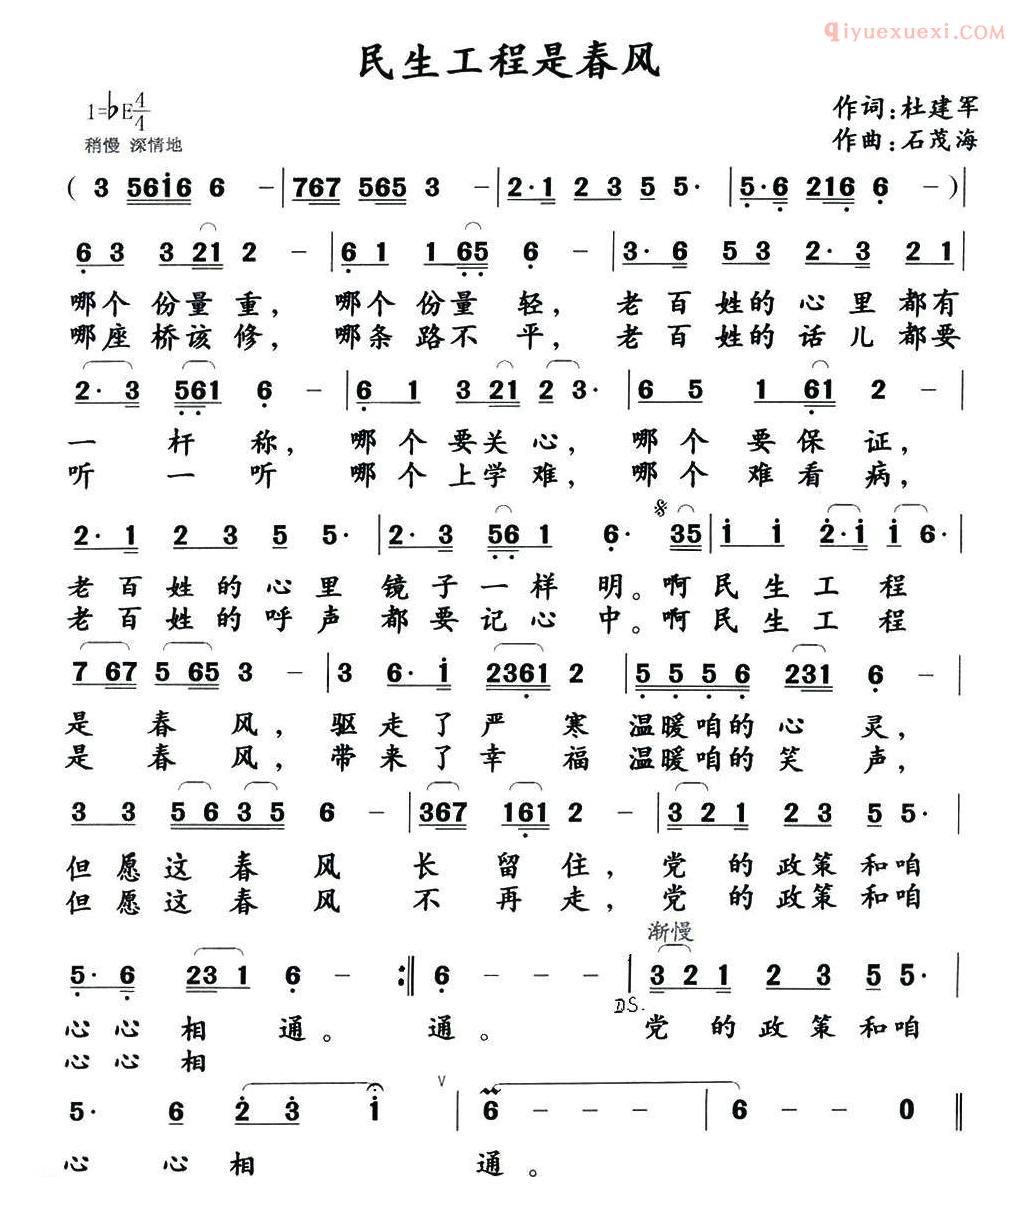 qiyuexuexi.COM
民生工程是春风
1=♭E 4/4
作词:杜建军
稍慢 深情地
作曲:石茂海
( 3 56i6 6 - | 767 565 3 - | 2·1 2 3 5 5· | 5·6 216 6 - ) |
6 3 3 21 2 - | 6 1 1 65 6 - | 3·6 5 3 2·3 2 1 |
哪个 份量 重, 哪个 份量 轻, 老百姓的心里都有
哪座 桥该 修, 哪条 路不 平, 老百姓的话儿都要
2·3 561 6 - | 6 1 3 21 2 3· | 6 5 1 61 2 - |
一 杆 称, 哪个要关心, 哪个要保证,
听 一 听 哪个上学难, 哪个难看病,
2·1 2 3 5 5· | 2·3 56 1 6· 35 | i i 2·i i 6· |
老百姓的心里 镜子一样 明。啊民生工程
老百姓的呼声 都要记心 中。啊民生工程
7 67 5 65 3 - | 3 6·i 2361 2 | 5 5 5 6 231 6 - |
是 春 风, 驱走了严 寒 温暖咱的心 灵,
是 春 风, 带来了幸 福 温暖咱的笑 声,
3 3 5 6 3 5 6 - | 367 161 2 - | 3 2 1 2 3 5 5· |
但愿这春风 长 留 住, 党的政策和咱
但愿这春风 不 再 走, 党的政策和咱
渐慢
5·6 23 1 6 - :‖ 6 - - - | 3 2 1 2 3 5 5· |
D.S.
心心相 通。 通。 党的政策和咱
心心相
V
5· 6 2 3 i | 6 - - - | 6 - - 0 ‖
心 心相 通。